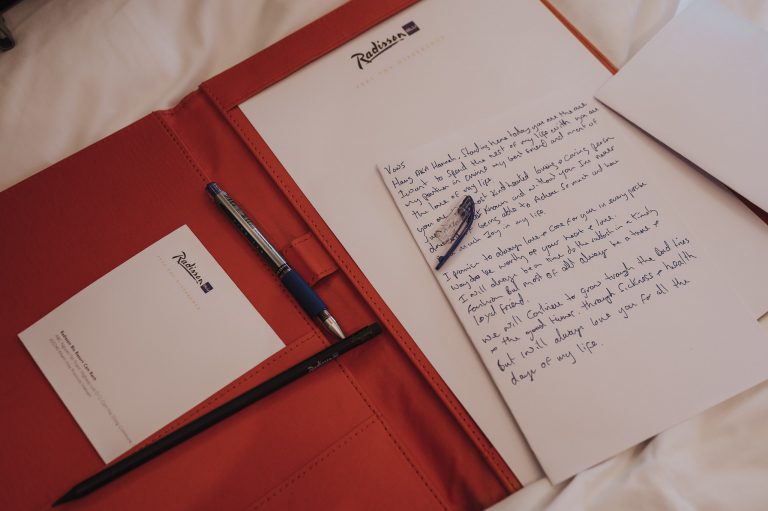 Radisson BLU
FEEL THE DIFFERENCE
Vows
Hannah, Standing here today you are the one
I want to spend the rest of my life with you are
my partner in crime my best friend and most of
the love of my life.
you are most kind hearted loving & caring person
known and without you Ive never
being able to Achieve So much and have
much Joy in my life.
I promise to always love & Care for you in every possible
way to be worthy of your heart & love.
I will always be on time do the rubbish in a timely
fashion But most of all always be a true &
loyal friend.
we will Continue to grow trough the Bad times
the good times. through Sickness & health
But I will always love you for all the
days of my life.
Radisson BLU
FEEL THE DIFFERENCE
Radisson Blu Resort Cam Ranh
Radisson